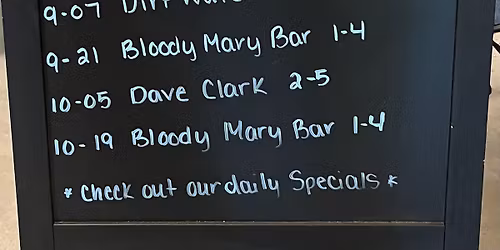 9-07
9-21 Bloody Mary Bar 1-4
10-05 Dave Clark 2-5
10-19 Bloody Mary Bar 1-4
* Check out our daily Specials *